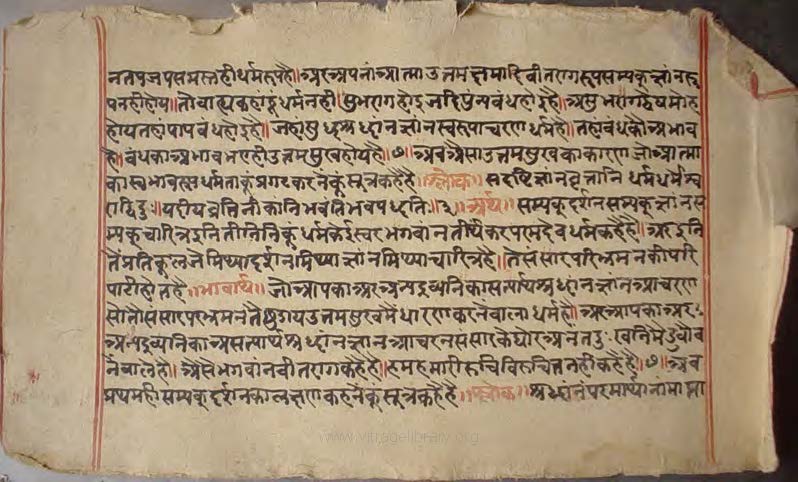 नतपजपसमस्तहीधर्मरूपहै॥अरअपनांआत्माउत्तमक्षमादिवीतरागरूपसम्यकज्ञांनरू
पनहीहोय॥तोबाह्यकहांहूधर्मनही॥शुभरागहोइजदिपुंन्यबंधहोइहै॥अशुभरागद्वेषमोह
होयतहांपापबंधहोइहै॥जहांशुधश्रधांनज्ञांनस्वरूपाचरणधर्महै॥तहांबंधकौअभाव
है॥बंधकाअभावभएहीउत्तमसुखहोयहै॥७॥अबअैसाउत्तमसुखकाकारणजोआत्मा
कास्वभावरूपधर्मताकूंप्रगटकरनेकूंसूत्रकहैहै॥श्लोक॥सदृष्टिज्ञानवृत्तानिधर्मंधर्मेश्व
राविदुः॥यदीयप्रत्यनीकानिभवंतिभवपधतिः॥३॥अर्थ॥सम्यकदर्शनसम्यकज्ञांनस
म्यकचारित्रइनितीनिनिकूंधर्मकेईस्वरभगवांनतीर्थंकरपरमदेवधर्मकहैहै॥अरइनि
तेंप्रतिकूलजेमिथ्यादर्शनमिथ्याज्ञांनमिथ्याचारित्रहै॥तेसंसारपरिभ्रमनकीपरि
पाटीहोतहै॥भावार्थ॥जोआपकाअरअन्यद्रव्यनिकासत्यार्थश्रधांनज्ञांनआचरण
सोतौसंसारपरिभ्रमनतैछुडायउत्तमसुखमैंधारणकरनेवालाधर्महै॥अरआपकाअर
अन्यद्रव्यनिकाअसत्यार्थश्रधांनज्ञांनआचरनसंसारकेघोरअनतदुःखनिमैंडुबोव
नेंवालेहै॥अैसैभगवांनवीतरागकहैहै॥हमहमारीरुचिविरचितनहीकहैहै॥७॥अब
प्रथमहीसम्यकदर्शनकालक्षणकहनेंकूंसूत्रकहैहै॥श्लोक॥श्रधांनंपरमार्थानामाप्ता
www.vitragelibrary.org